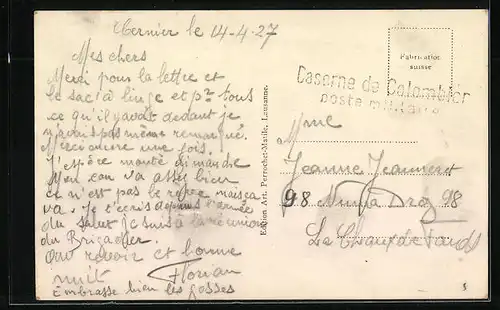 Cernier le 14-4-27
Mes chers
Merci pour la lettre et
le sac à linge et pr tous
ce qu'il y avait dedant je
n'avais pas même remarqué.
Merci encore une fois.
J'espère monté dimanche
Mon va assez bien
ce n'est pas le mais ça
va. Je t'écris depuis l'armée
du salut je suis à la réunion
du Brigadier.
Au revoir et bonne
nuit Florian
Embrasse bien les gosses
Edition Art. Perrochet-Matile, Lausanne.
Fabrication
suisse
Caserne de Colombier
poste militaire
Mme
Jeanne Jeanneret
98 Numa Droz 98
La Chaux de Fonds